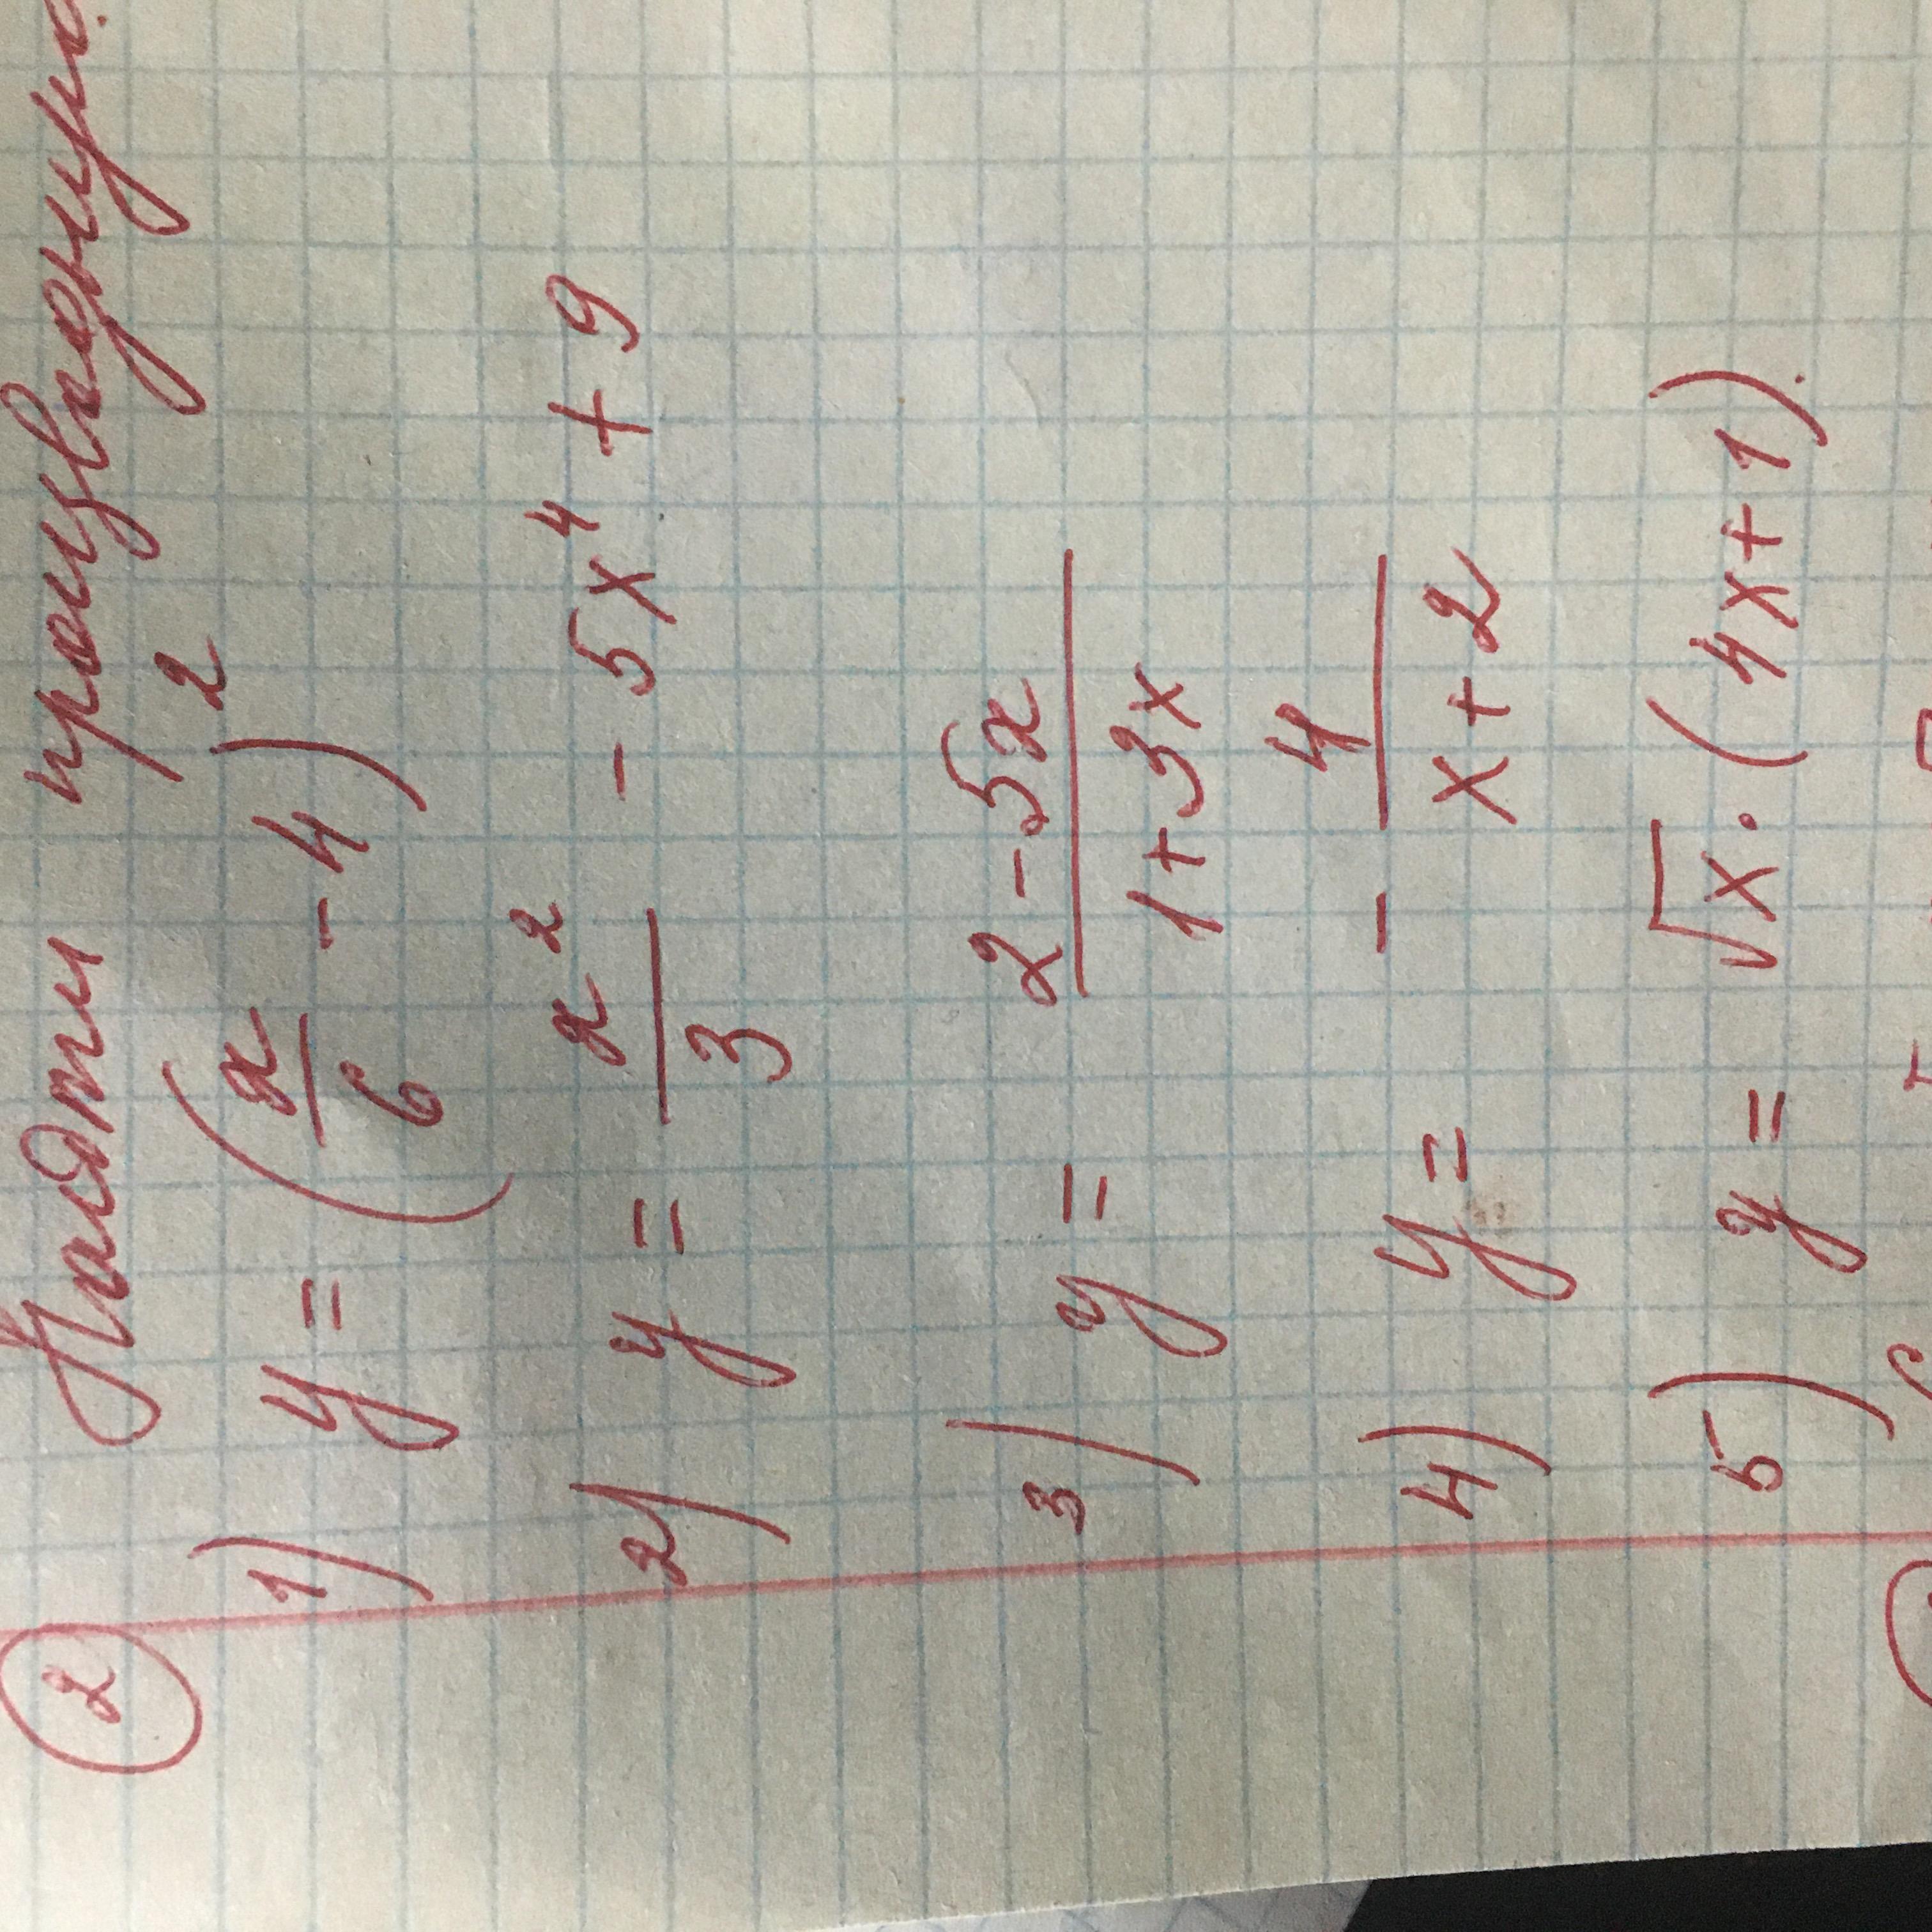 ② Найти производную.
1) y = (x/6 - 4)²
2) y = x²/3 - 5x⁴ + 9
3) y = (2 - 5x)/(1 + 3x)
4) y = - 4/(x + 2)
5) y = √x · (4x + 1).